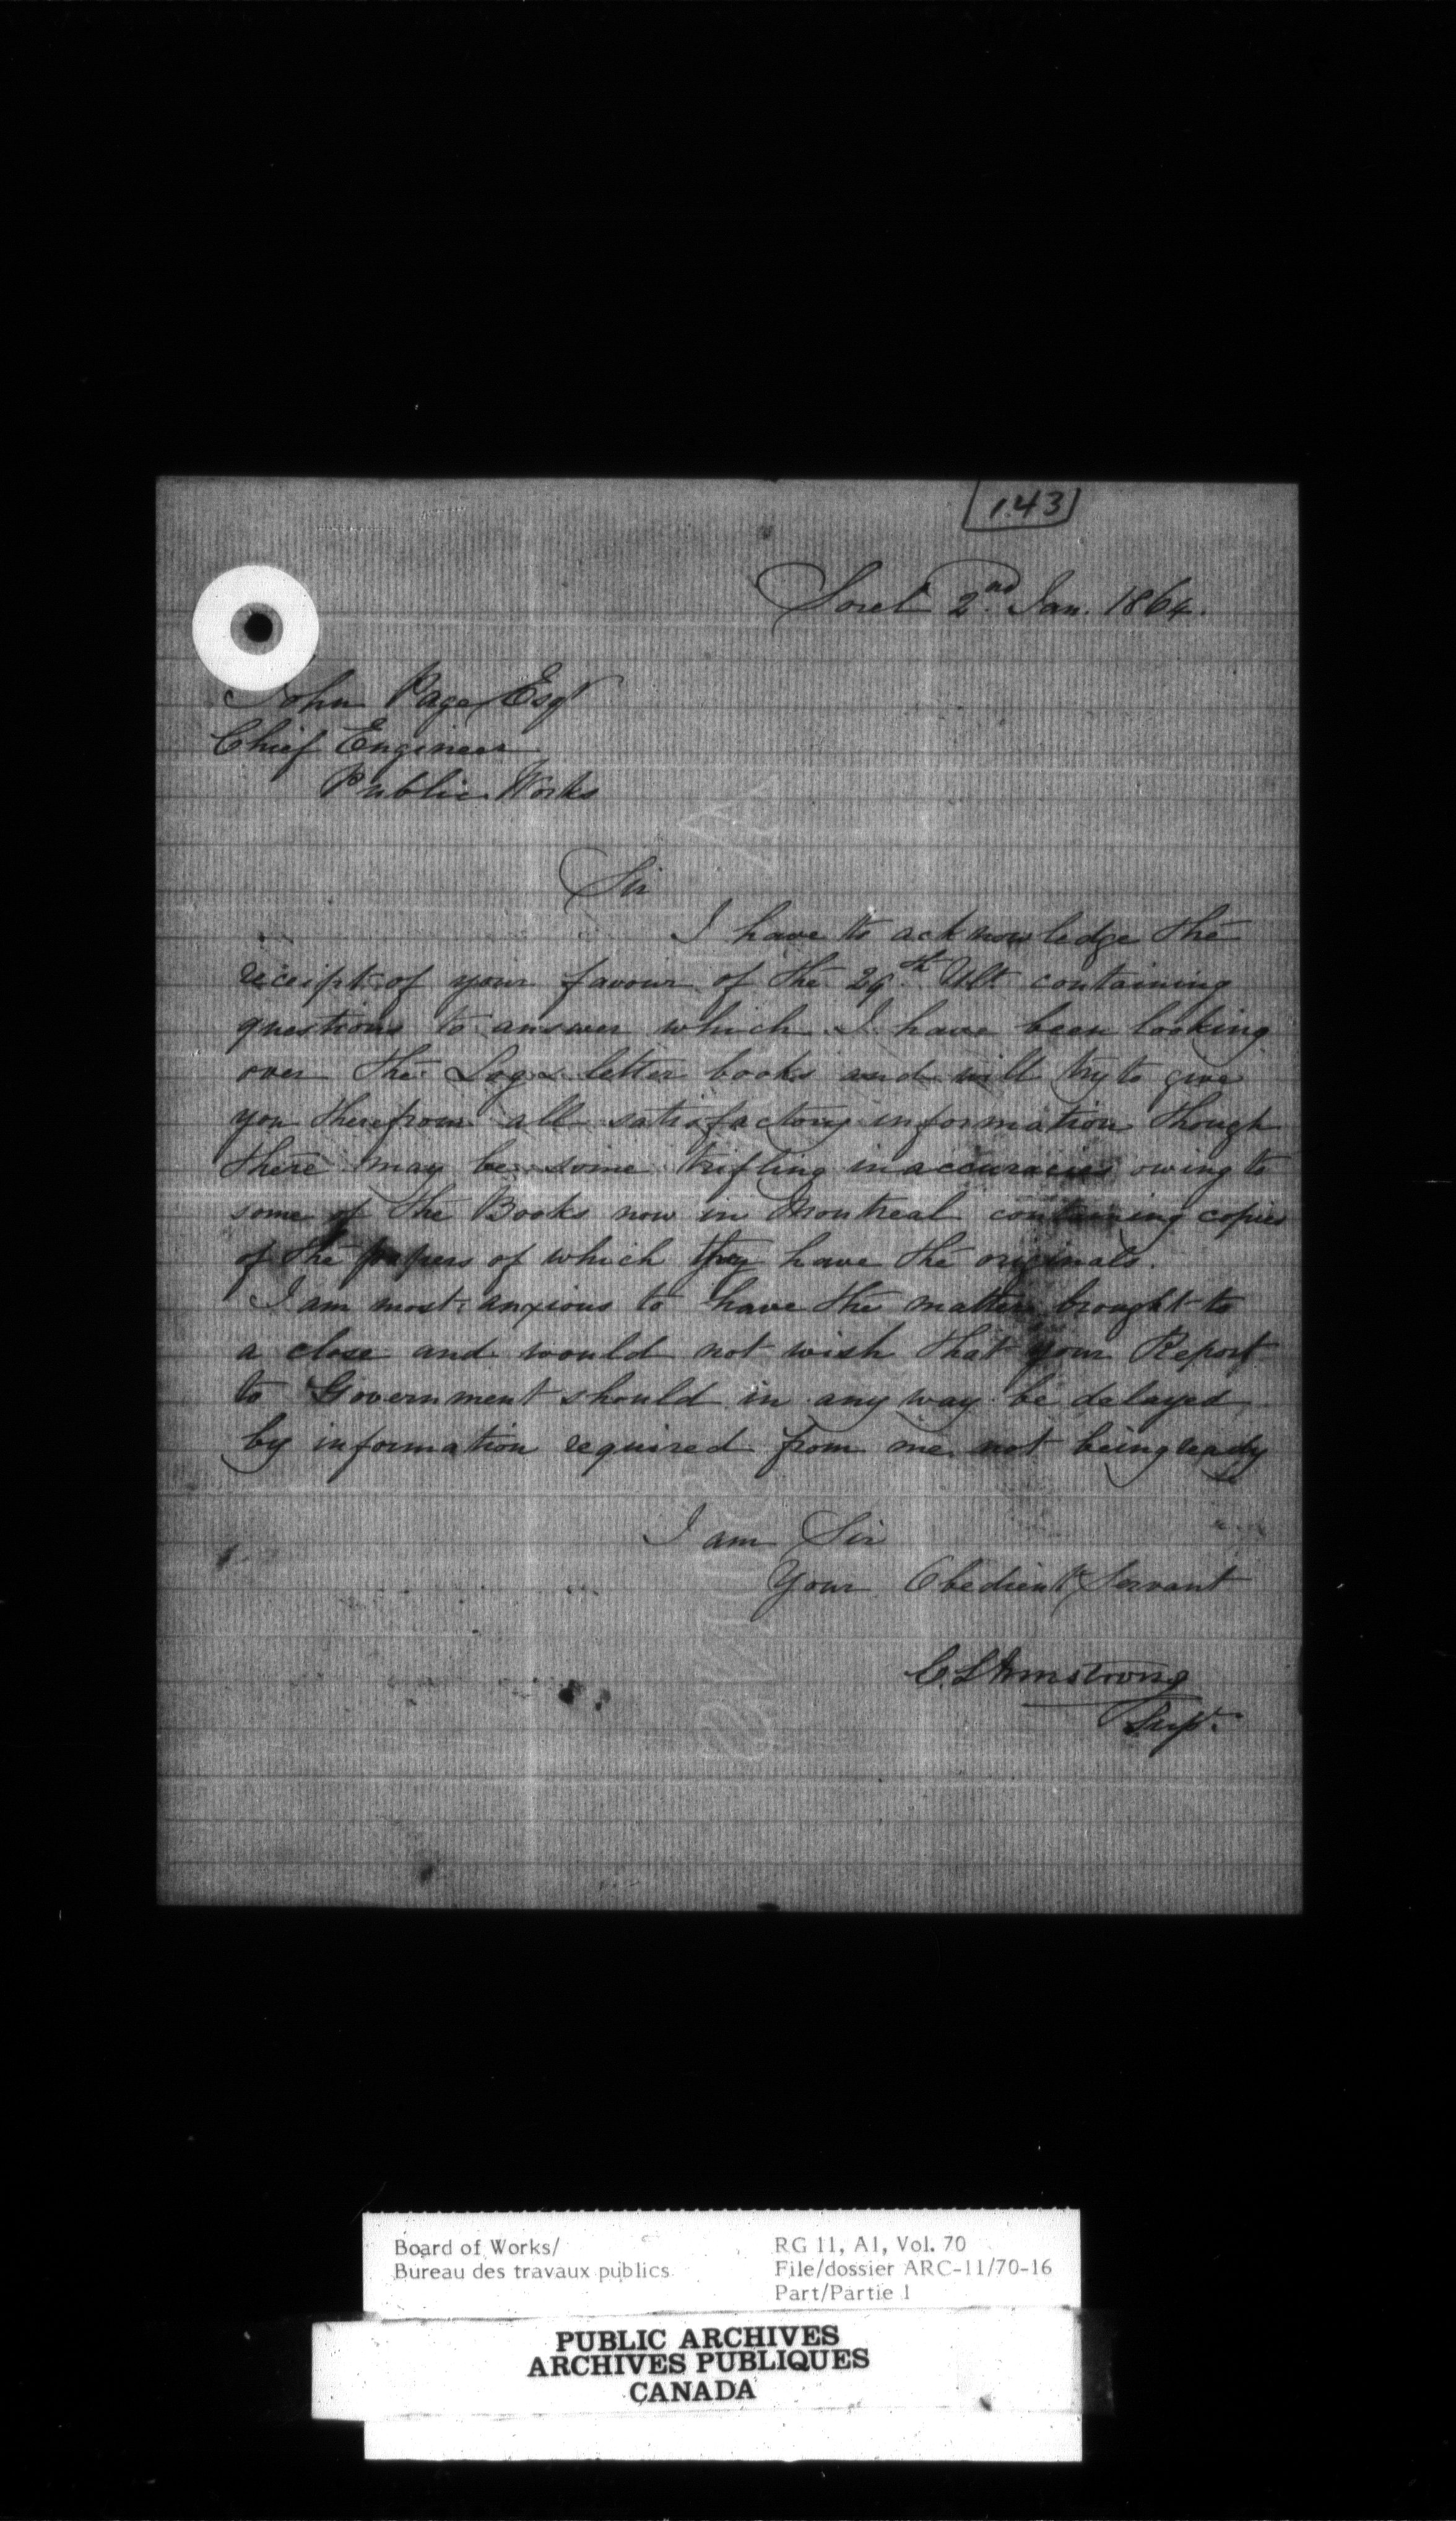 143
Sorel 2nd Jan. 1864.
John Page Esqr
Chief Engineer
Public Works
Sir
I have to acknowledge the
receipt of your favour of the 29th Ult. containing
questions to answer which I have been looking
over the Log & letter books and will try to give
you therefrom all satisfactory information though
there may be some trifling inaccuracies owing to
some of the Books now in Montreal containing copies
of the papers of which they have the originals.
I am most anxious to have the matter brought to
a close and would not wish that your Report
to Government should in any way be delayed
by information required from me not being ready
I am Sir
Your Obedient Servant
C. L. Armstrong
Supt.
Board of Works/
Bureau des travaux publics
RG 11, A1, Vol. 70
File/dossier ARC-11/70-16
Part/Partie 1
PUBLIC ARCHIVES
ARCHIVES PUBLIQUES
CANADA